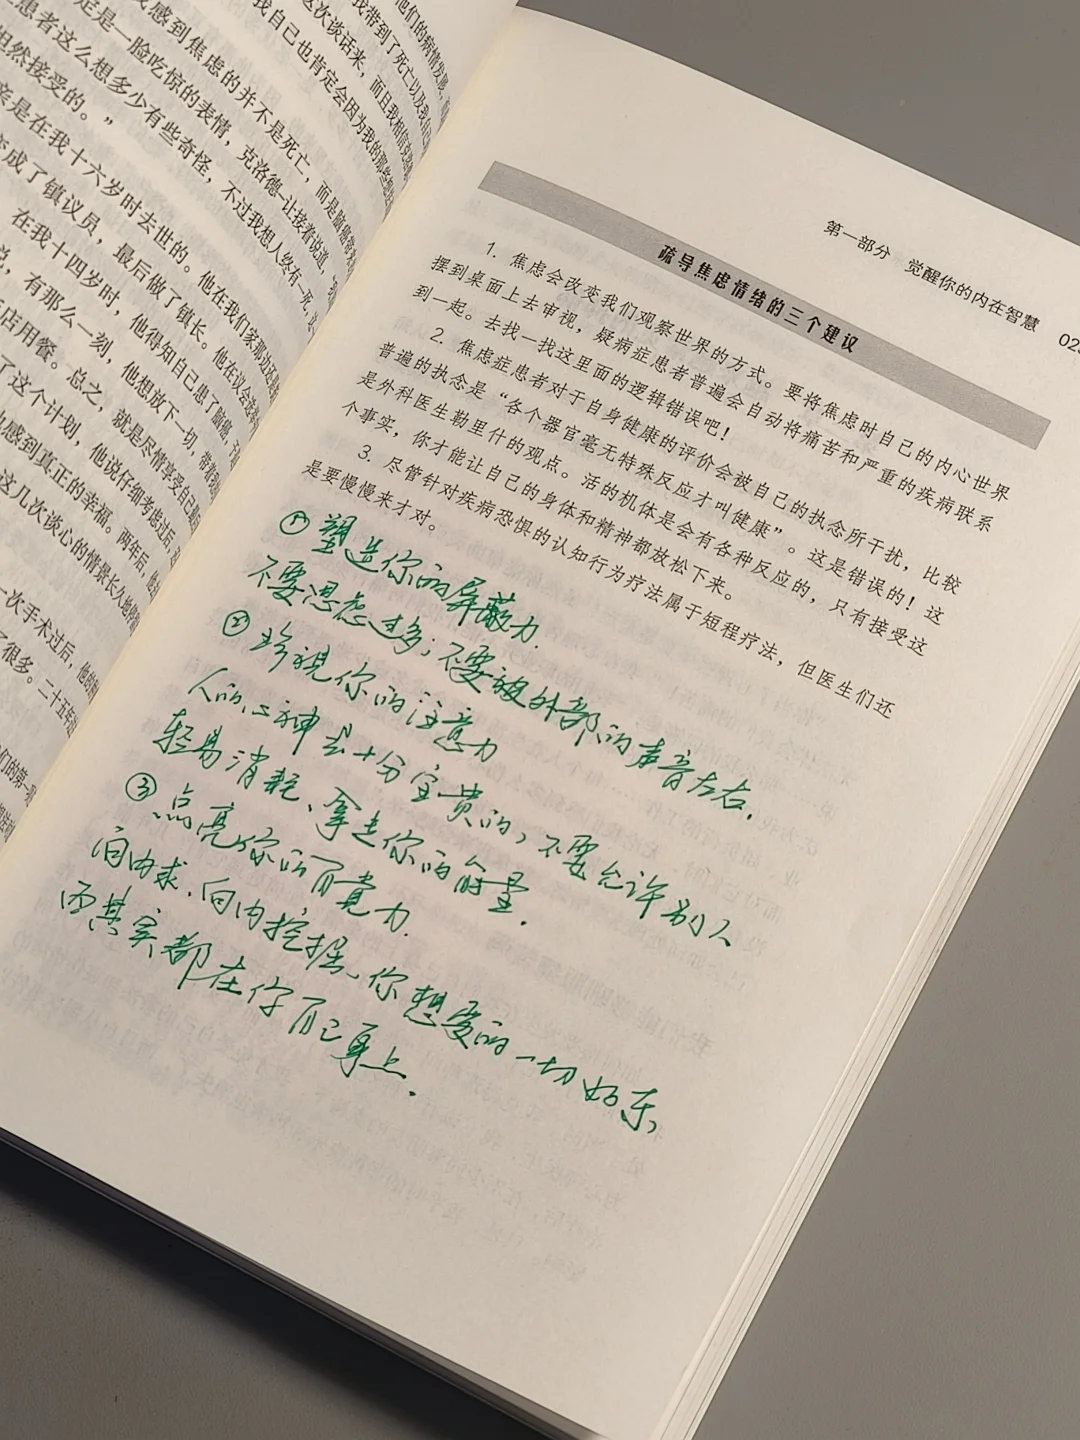 他们的病情发展，
我带到了死亡以及我自己
这次谈话来，而且我相信克洛德
我自己也肯定会因为我的那些
我感到焦虑的并不是死亡，而是脑癌
定是一脸吃惊的表情，克洛德-让接着说道，
患者这么想多少有些奇怪，不过我想人终有一死，
坦然接受的。”
亲是在我十六岁时去世的。他在我们家那边还是
变成了镇议员，最后做了镇长。他在议会
在我十四岁时，他得知自己患了脑癌，
说，有那么一刻，他想放下一切，带着我
店用餐。总之，就是尽情享受自己
了这个计划，他说仔细考虑过后，
也感到真正的幸福。两年后，他
这几次谈心的情景长久地
一次手术过后，他的
了很多。二十五年
们的第一
第一部分 觉醒你的内在智慧
疏导焦虑情绪的三个建议
1. 焦虑会改变我们观察世界的方式。要将焦虑时自己的内心世界
摆到桌面上去审视，疑病症患者普遍会自动将痛苦和严重的疾病联系
到一起。去找一找这里面的逻辑错误吧！
2. 焦虑症患者对于自身健康的评价会被自己的执念所干扰，比较
普遍的执念是“各个器官毫无特殊反应才叫健康”。这是错误的！这
是外科医生勒里什的观点。活的机体是会有各种反应的，只有接受这
个事实，你才能让自己的身体和精神都放松下来。
3. 尽管针对疾病恐惧的认知行为疗法属于短程疗法，但医生们还
是要慢慢来才对。
① 塑造你的屏蔽力.
不要思虑过多；不要被外部的声音左右.
② 珍视你的注意力
人的心神是十分宝贵的，不要允许别人
轻易消耗、拿走你的能量.
③ 点亮你的自愈力.
向内求，向内挖掘、你想要的一切好东
西其实都在你自己身上.